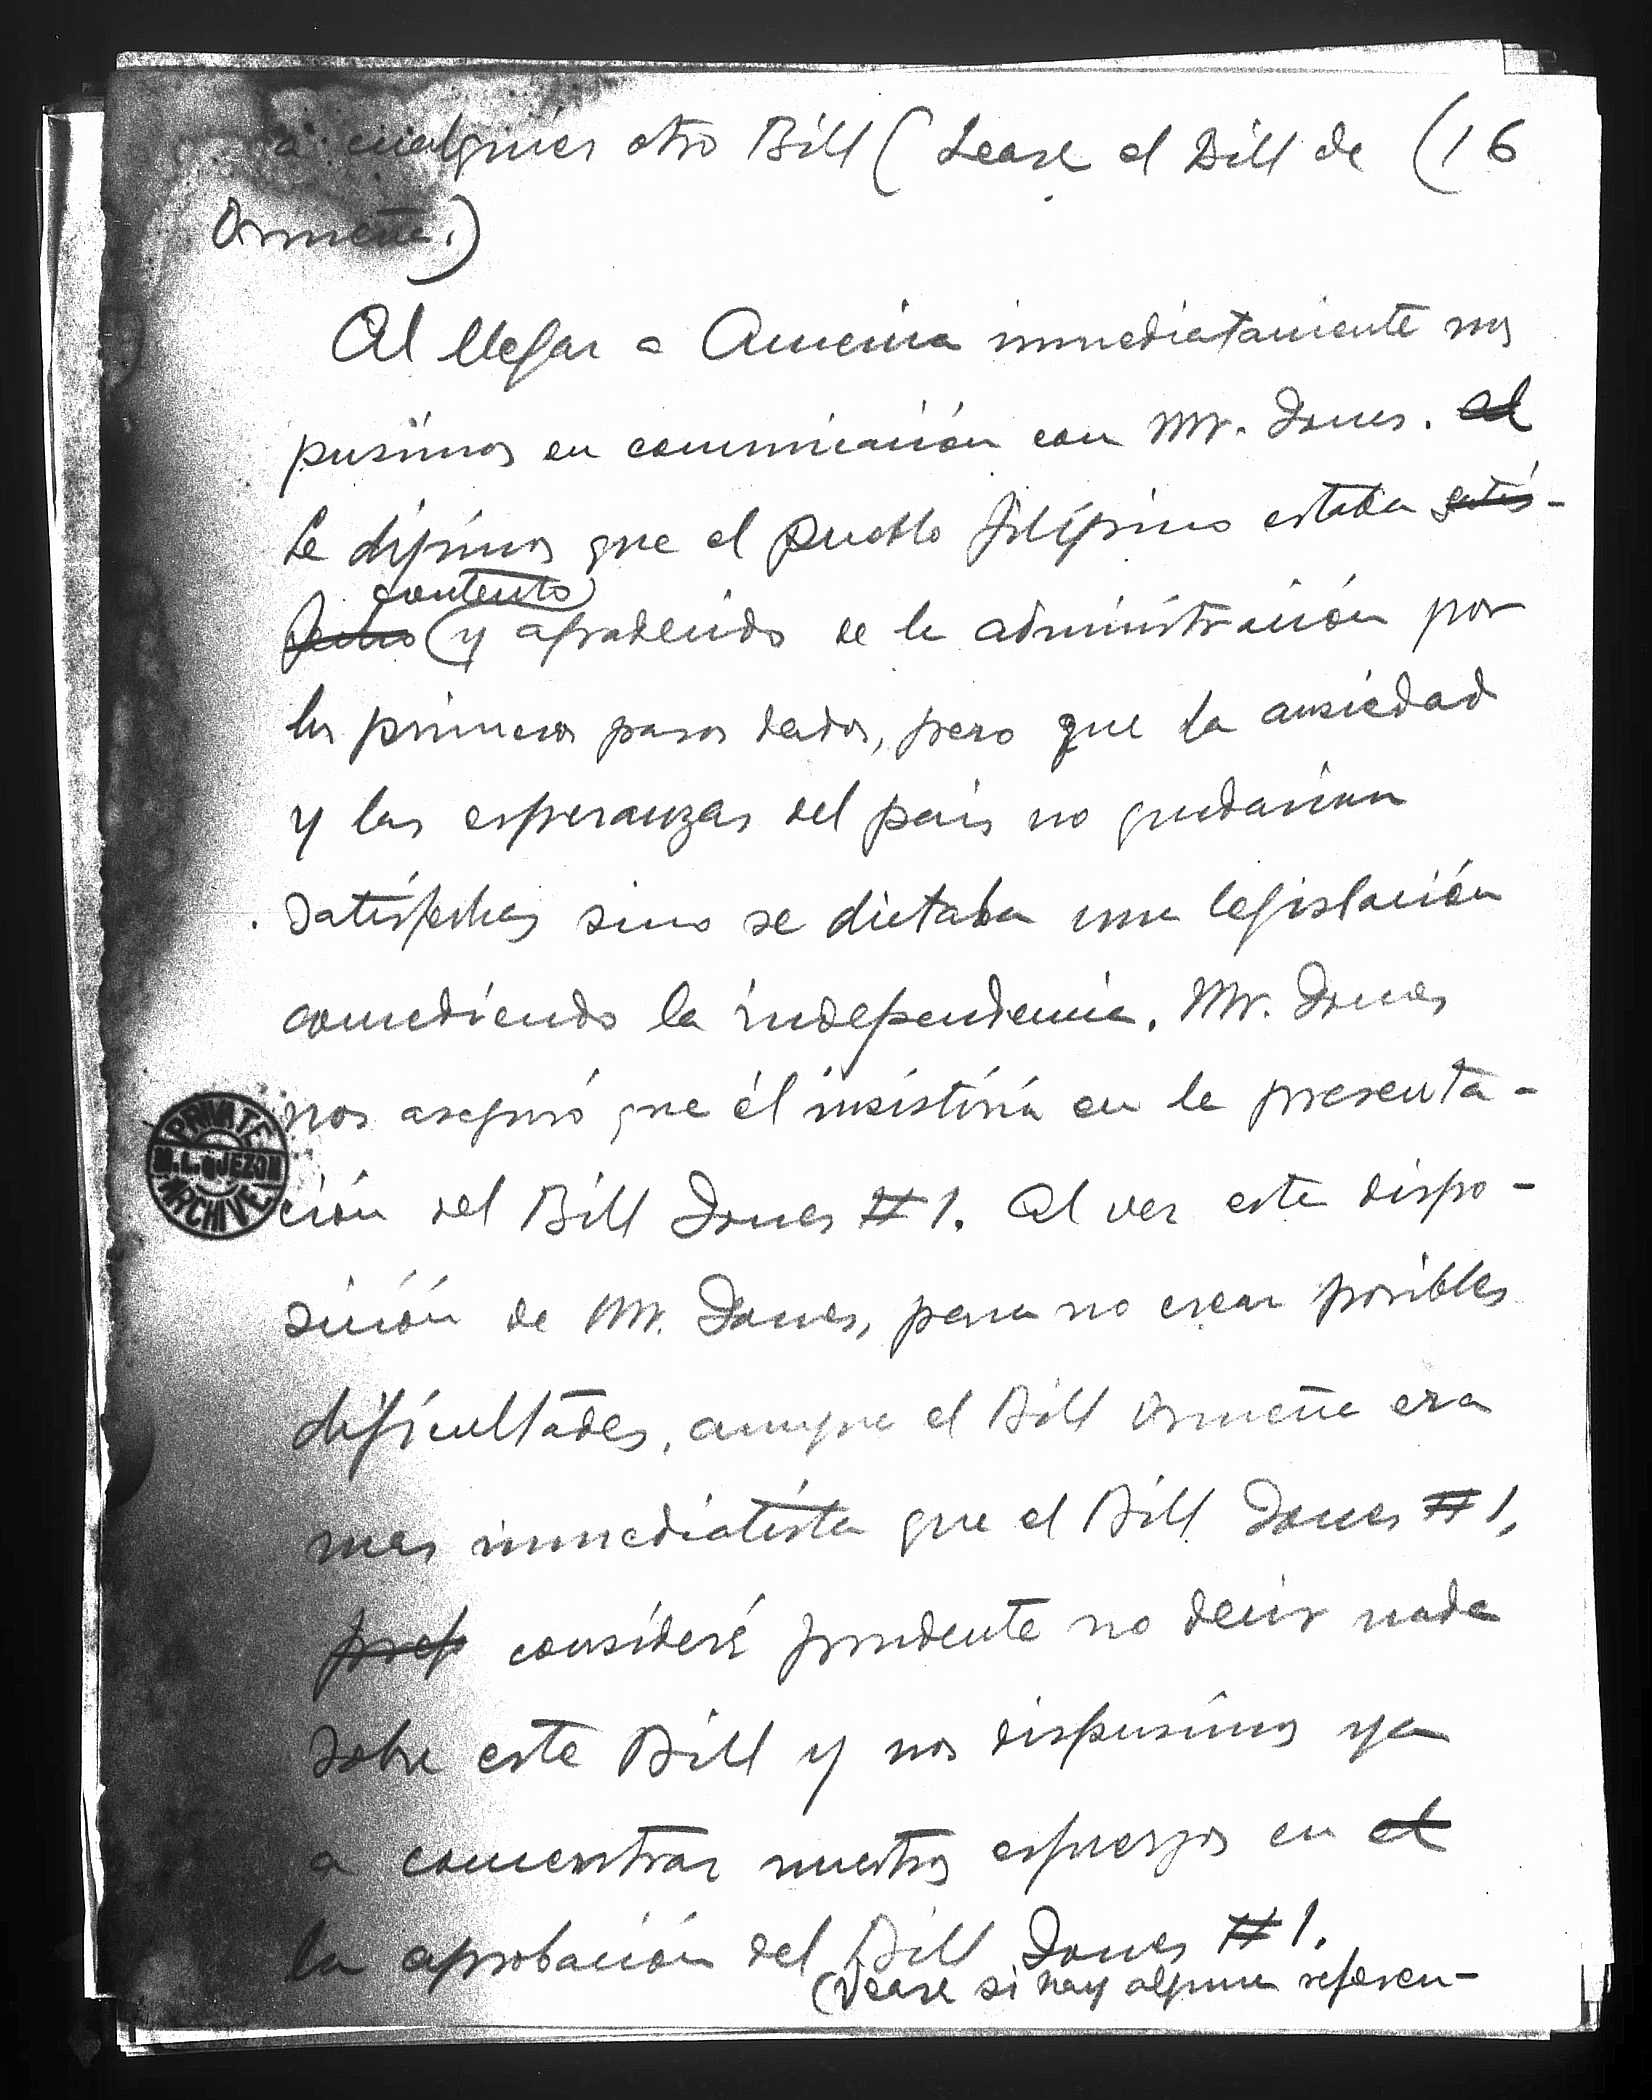 a cualquier otro Bill (Lease el Bill de (16
Ormeña.)
Al llegar a America inmediatamente nos
pusimos en comunicación con Mr. Jones. al
Le dijimos que el pueblo filipino estaba satis-
contento
fecho (y agradecido de la administración por
los primeros pasos dados, pero que la ansiedad
y las esperanzas del pais no quedarian
satisfechas sino se dictaba una legislación
concediendo la independencia. Mr. Jones
nos aseguró que él insistiria en la presenta-
PRIVATE
M.L. QUEZON
ARCHIVE
ción del Bill Jones #1. Al ver esta dispo-
sición de Mr. Jones, para no crear posibles
dificultades, aunque el Bill Ormeña era
mas inmediatista que el Bill Jones #1,
consideré prudente no decir nada
sobre este Bill y nos dispusimos ya
a concentrar nuestros esfuerzos en el
la aprobación del Bill Jones #1.
(Vease si hay alguna referen-